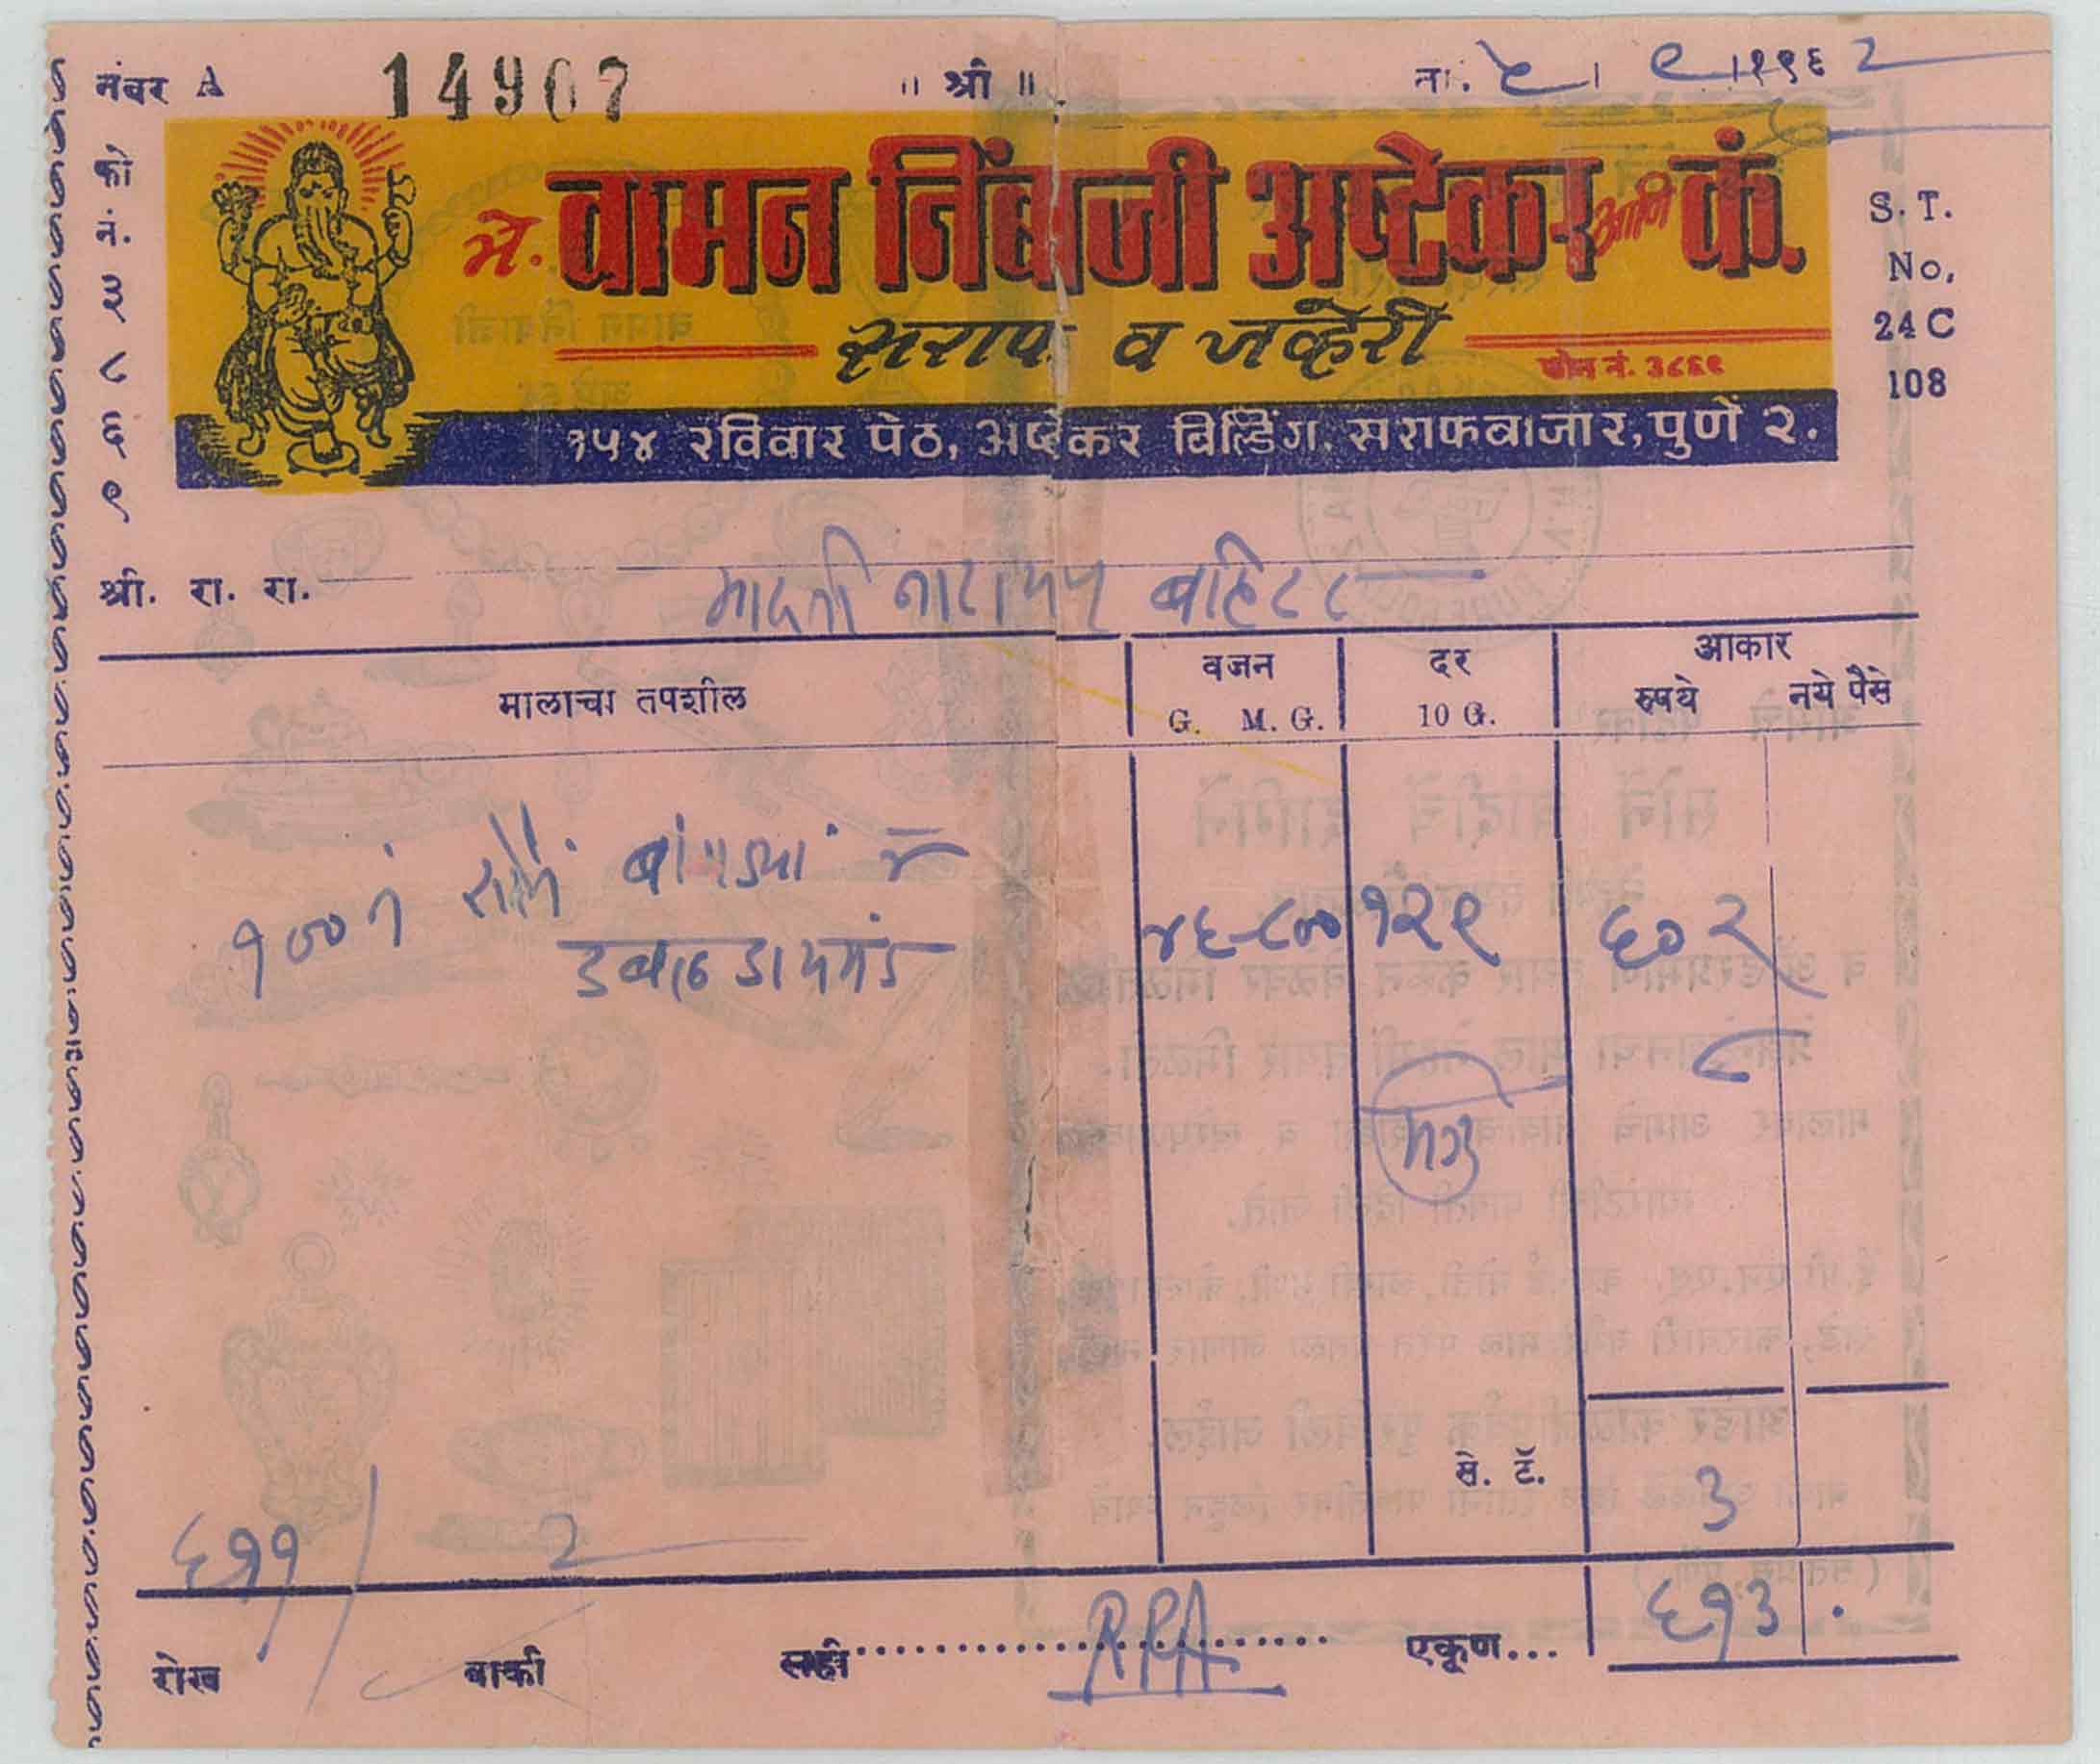 नंबर A 14907 ॥ श्री ॥ ता. ९ १९६२
फो नं. ५८६९
मे. वामन निंबाजी अष्टेकर आणि कं.
सराफ व जव्हेरी
फोन नं. ३८६९
१५४ रविवार पेठ, अष्टेकर बिल्डिंग, सराफबाजार, पुणें २.
S. T.
No.
24 C
108
श्री. रा. रा. मारुती नारायण बहिरट
मालाचा तपशील वजन दर आकार
G. M. G. 10 G. रुपये नये पैसे
१०० नं सोनें बांगड्या ४ ४६-८०० १२९ ६०२
डबल डायमंड
८
मजु
से. टॅ. ३
६११ २
रोख बाकी सही RPA एकूण... ६१३ .